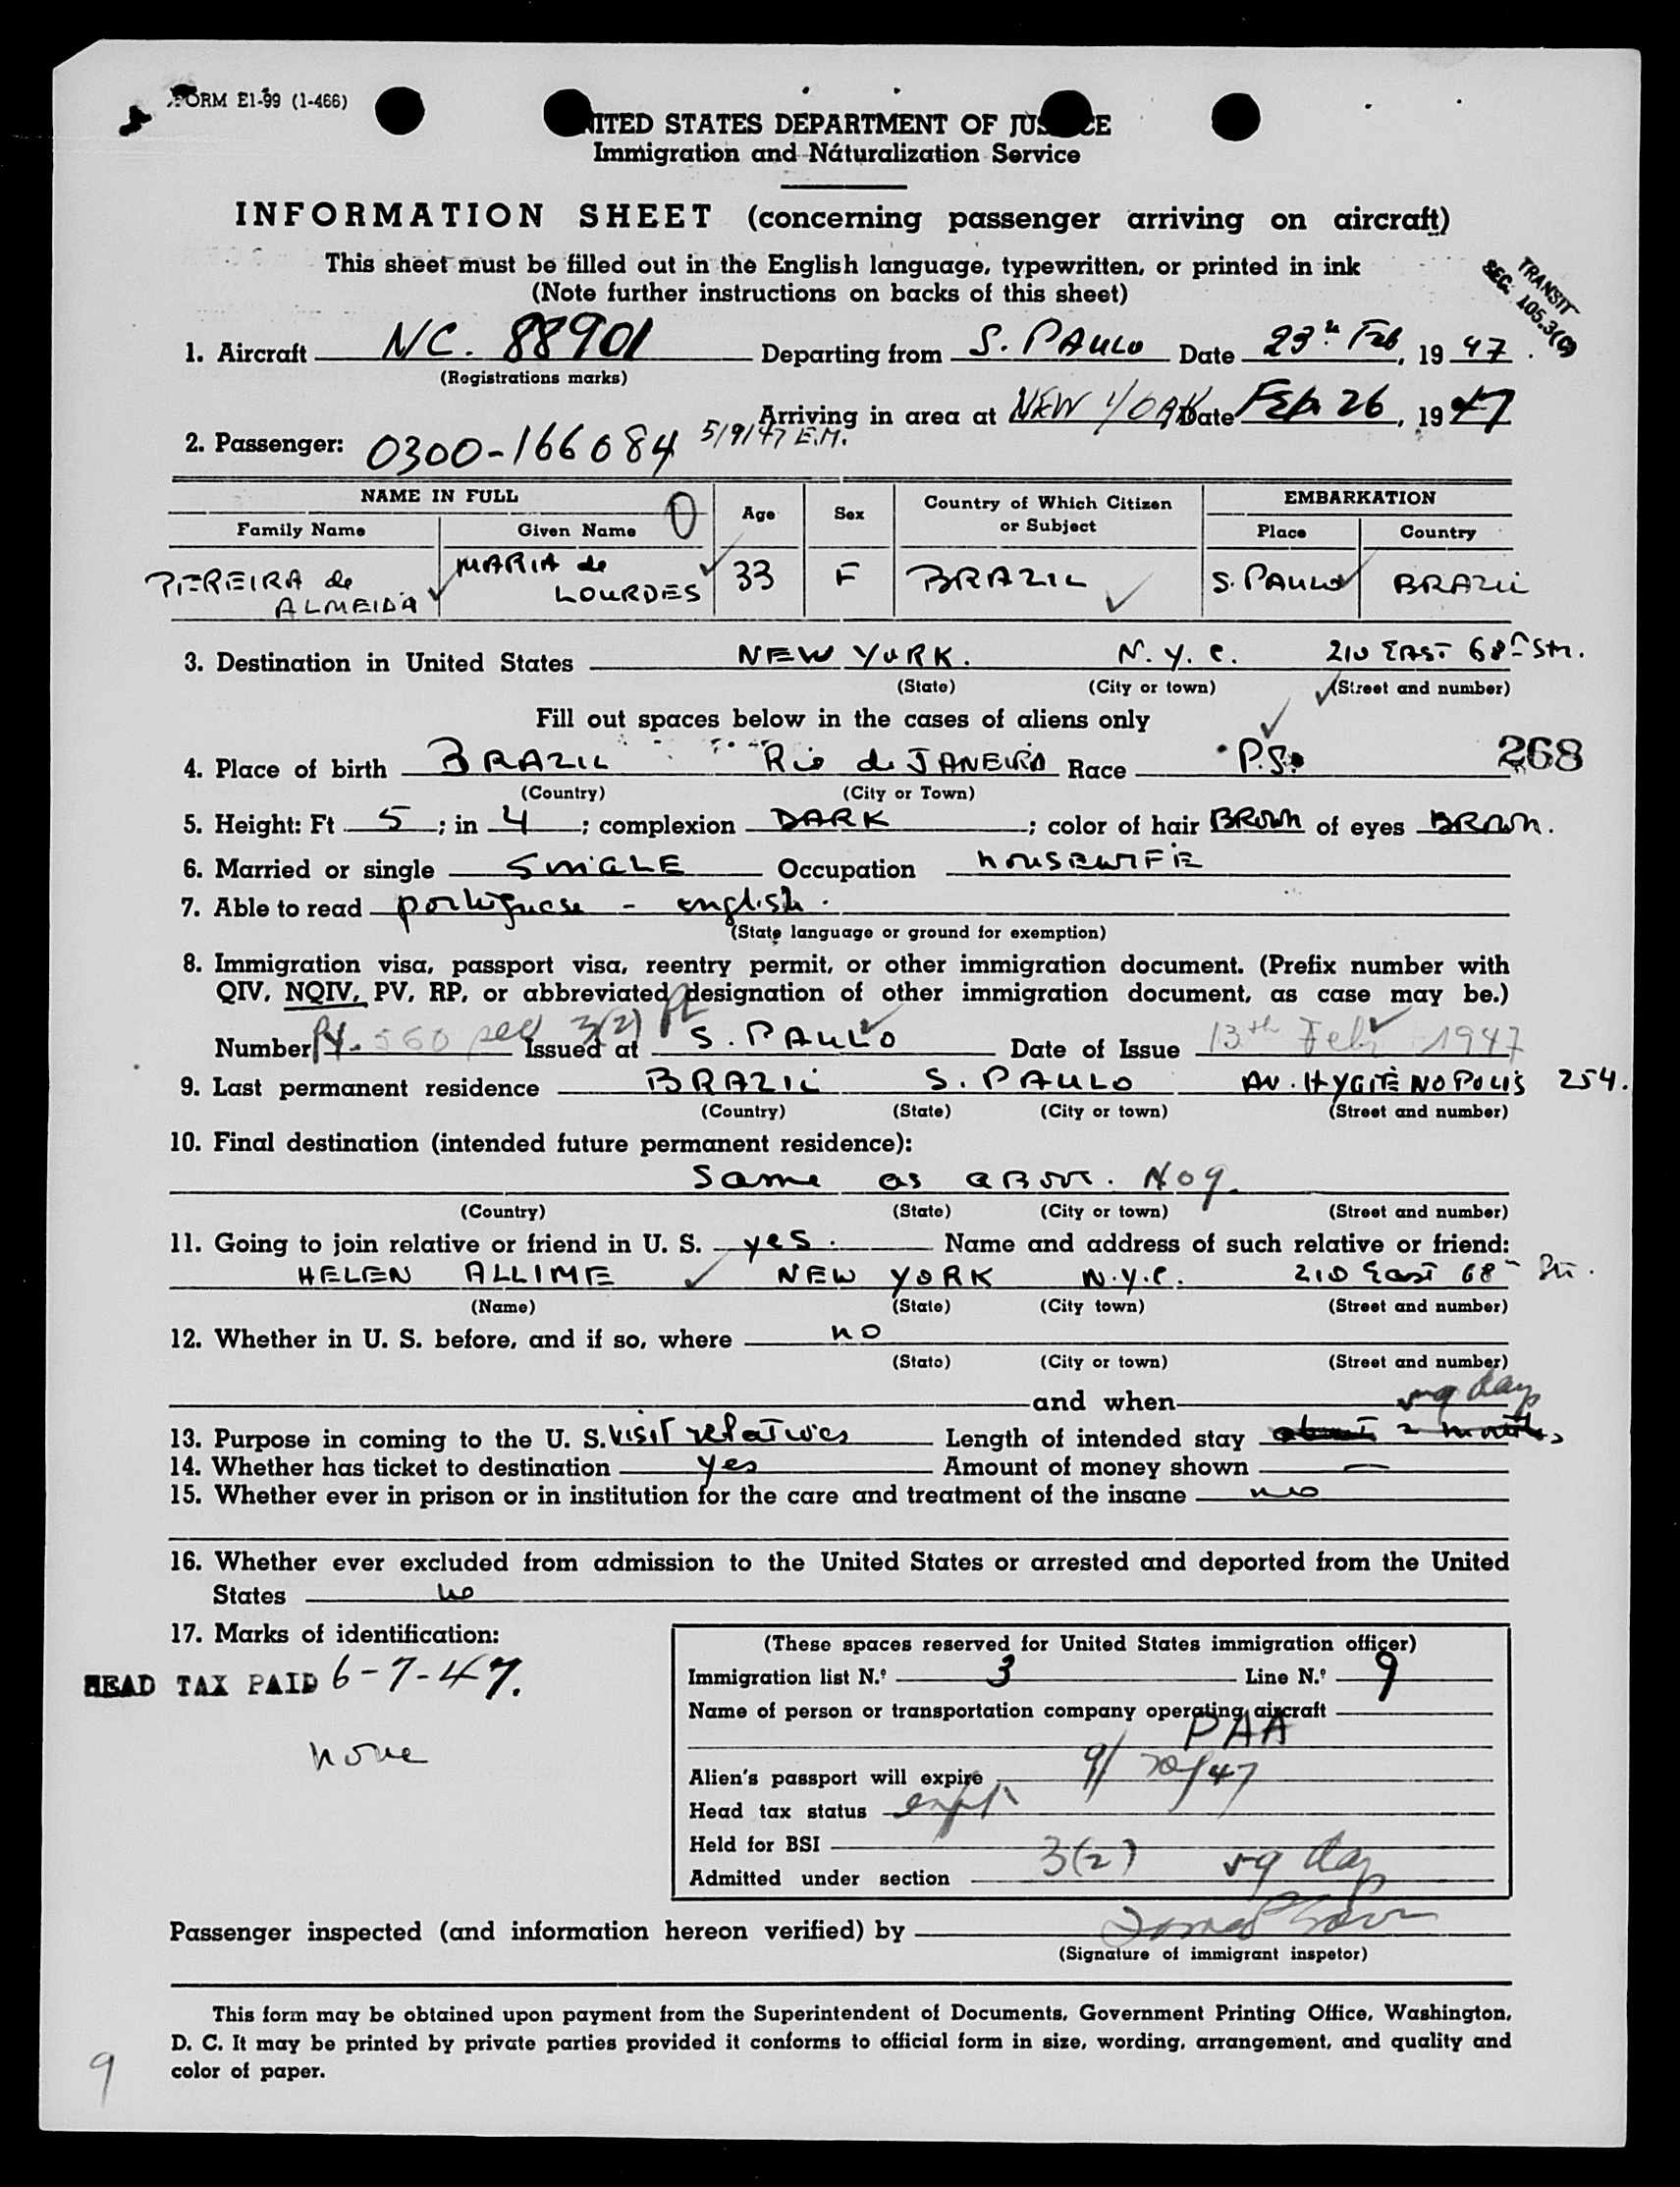 FORM E1-99 (1-466)
UNITED STATES DEPARTMENT OF JUSTICE
Immigration and Naturalization Service
INFORMATION SHEET (concerning passenger arriving on aircraft)
This sheet must be filled out in the English language, typewritten, or printed in ink
(Note further instructions on backs of this sheet)
TRANSIT
SEC. 105.3(G)
1. Aircraft NC. 88901 Departing from S. PAULO Date 23th Feb, 19 47.
(Registrations marks)
Arriving in area at NEW YORK Date Feb 26, 19 47
2. Passenger: 0300-166084 5/9/47 E.M.
NAME IN FULL Age Sex Country of Which Citizen or Subject EMBARKATION
Family Name Given Name O Place Country
PEREIRA de ALMEIDA MARIA de LOURDES 33 F BRAZIL S. PAULO BRAZIL
3. Destination in United States NEW YORK. N.Y.C. 210 EAST 68th Str.
(State) (City or town) (Street and number)
Fill out spaces below in the cases of aliens only
4. Place of birth BRAZIL Rio de JANEIRO Race P.S. 268
(Country) (City or Town)
5. Height: Ft 5; in 4; complexion DARK; color of hair BROWN of eyes BROWN.
6. Married or single SINGLE Occupation HOUSEWIFE
7. Able to read portuguese - english.
(State language or ground for exemption)
8. Immigration visa, passport visa, reentry permit, or other immigration document. (Prefix number with
QIV, NQIV, PV, RP, or abbreviated designation of other immigration document, as case may be.)
Number PV. 560 sec 3(2) Issued at S. PAULO Date of Issue 13th Feb 1947
9. Last permanent residence BRAZIL S. PAULO AV. HYGIENOPOLIS 254.
(Country) (State) (City or town) (Street and number)
10. Final destination (intended future permanent residence):
Same as above. No 9.
(Country) (State) (City or town) (Street and number)
11. Going to join relative or friend in U. S. yes. Name and address of such relative or friend:
HELEN ALLIME NEW YORK N.Y.C. 210 East 68th Str.
(Name) (State) (City town) (Street and number)
12. Whether in U. S. before, and if so, where no
(State) (City or town) (Street and number)
and when 59 days
13. Purpose in coming to the U. S. visit relatives Length of intended stay about 2 months
14. Whether has ticket to destination yes Amount of money shown —
15. Whether ever in prison or in institution for the care and treatment of the insane no
16. Whether ever excluded from admission to the United States or arrested and deported from the United
States no
17. Marks of identification:
HEAD TAX PAID 6-7-47.
none
(These spaces reserved for United States immigration officer)
Immigration list N.º 3 Line N.º 9
Name of person or transportation company operating aircraft
PAA
Alien's passport will expire 9/20/47
Head tax status
Held for BSI
Admitted under section 3(2) 59 days
Passenger inspected (and information hereon verified) by
(Signature of immigrant inspetor)
This form may be obtained upon payment from the Superintendent of Documents, Government Printing Office, Washington,
D. C. It may be printed by private parties provided it conforms to official form in size, wording, arrangement, and quality and
color of paper.
9